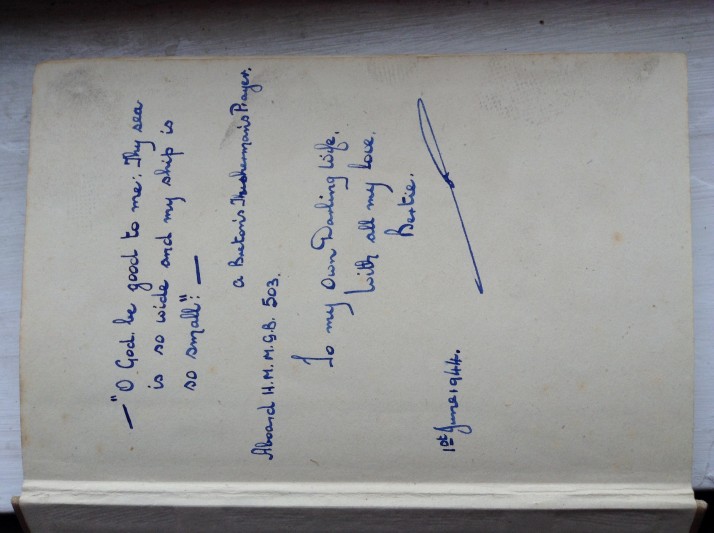 —"O God. be good to me: Thy sea
is so wide and my ship is
so small": —
a Breton's Fisherman's Prayer.
Aboard H.M.M.G.B. 503.
To my Own Darling Wife.
With all my love.
Bertie.
1st June 1944.